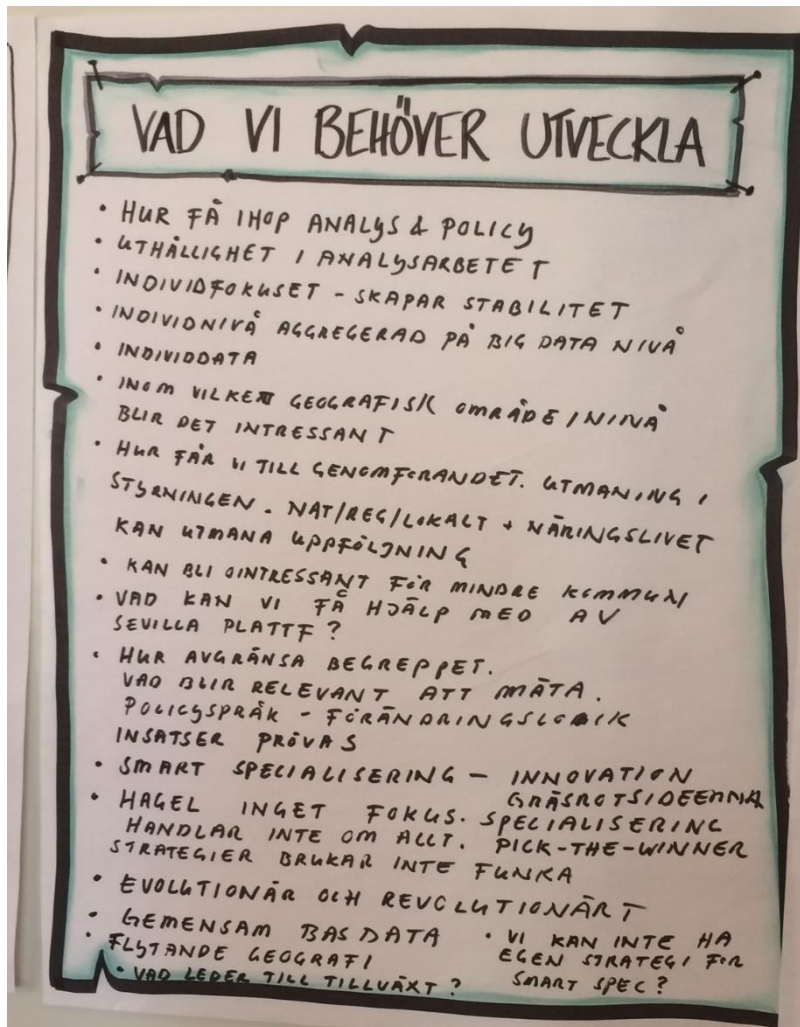 VAD VI BEHÖVER UTVECKLA
• HUR FÅ IHOP ANALYS & POLICY
• UTHÅLLIGHET I ANALYSARBETET
• INDIVIDFOKUSET - SKAPAR STABILITET
• INDIVIDNIVÅ AGGREGERAD PÅ BIG DATA NIVÅ
• INDIVIDDATA
• INOM VILKET GEOGRAFISK OMRÅDE/NIVÅ
BLIR DET INTRESSANT
• HUR FÅR VI TILL GENOMFÖRANDET. UTMANING I
STYRNINGEN. NAT/REG/LOKALT + NÄRINGSLIVET
KAN UTMANA UPPFÖLJNING
• KAN BLI OINTRESSANT FÖR MINDRE KOMMUN
• VAD KAN VI FÅ HJÄLP MED AV
SEVILLA PLATTF?
• HUR AVGRÄNSA BEGREPPET.
VAD BLIR RELEVANT ATT MÄTA.
POLICYSPRÅK - FÖRÄNDRINGSLOGIK
INSATSER PRÖVAS
• SMART SPECIALISERING - INNOVATION
GRÄSROTSIDEERNA
• HAGEL INGET FOKUS. SPECIALISERING
HANDLAR INTE OM ALLT. PICK-THE-WINNER
STRATEGIER BRUKAR INTE FUNKA
• EVOLUTIONÄR OCH REVOLUTIONÄRT
• GEMENSAM BASDATA
• FLYTANDE GEOGRAFI
• VAD LEDER TILL TILLVÄXT?
• VI KAN INTE HA
EGEN STRATEGI FÖR
SMART SPEC?